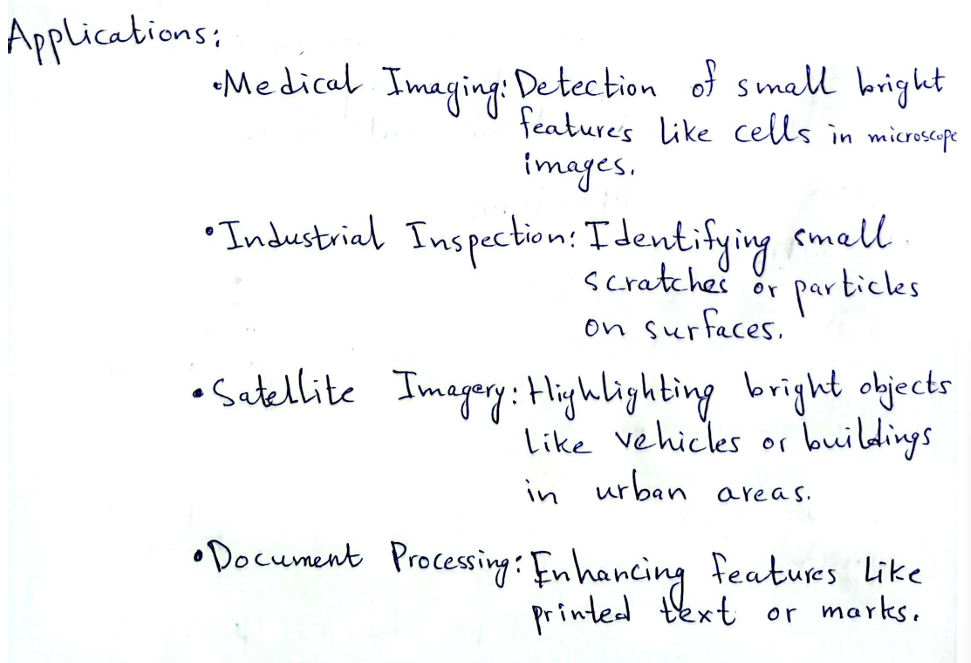 Applications:
•Medical Imaging: Detection of small bright
features like cells in microscope
images.
•Industrial Inspection: Identifying small
scratches or particles
on surfaces.
•Satellite Imagery: Highlighting bright objects
like vehicles or buildings
in urban areas.
•Document Processing: Enhancing features like
printed text or marks.